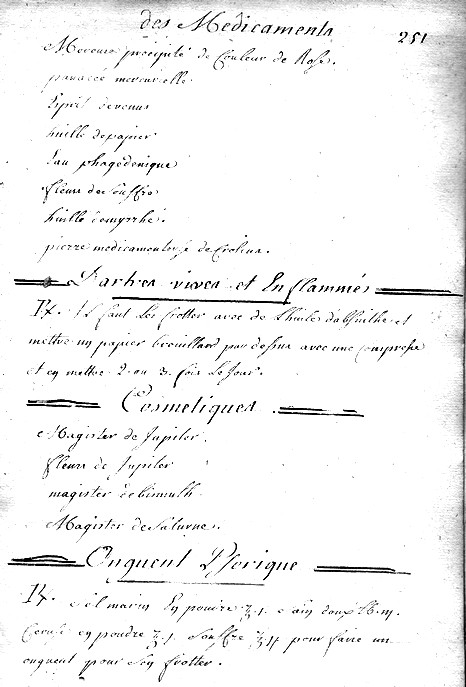 des Medicaments
251
Mercure precipité de Couleur de Rose.
panacée mercurielle.
Esprit de venus
huille de papier
Eau phagedenique
fleurs de Souffre
huille de myrrhe.
pierre medicamenteuse de Crolius.
Dartres vives et Enflammés
Rx. Il faut Les frotter avec de L'huile d'absinthe et
mettre un papier brouillard par dessus avec une compresse
et en mettre 2. ou 3. fois Le Jour.
Cosmetiques
Magister de Jupiter.
fleurs de Jupiter
magister de bismuth
Magister de Saturne.
Onguent Psorique
Rx. Sel marin En poudre ℥1. doux
Ceruse en poudre ℥1. Souffre pour faire un
onguent pour s'en frotter.